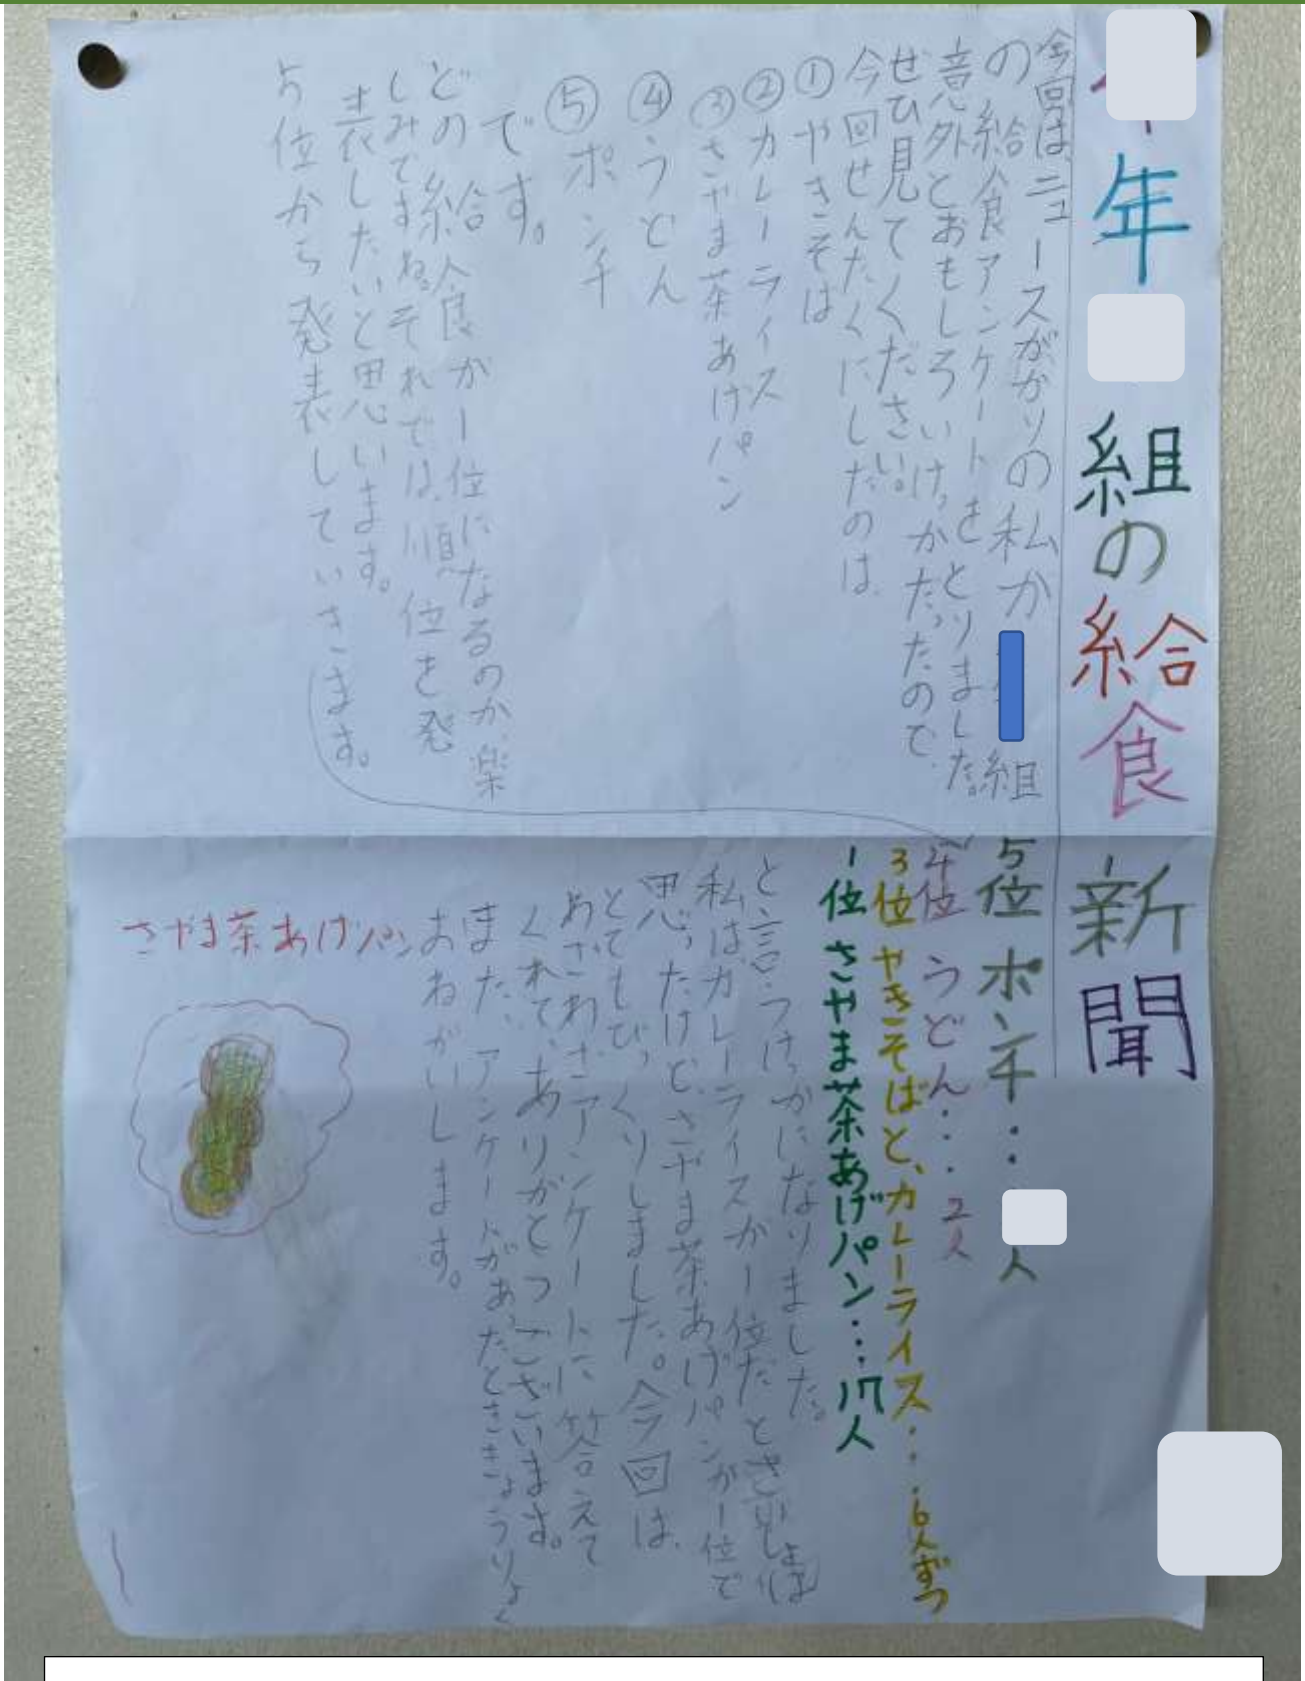 年
組の給食新聞
今回は、ニュースがかりの私が
組
の給食アンケートをとりました。
意外とおもしろいけっかだったので、
ぜひ見てください。
今回せんたくにしたのは、
①やきそば
②カレーライス
③さやま茶あげパン
④うどん
⑤ポンチ
です。
どの給食が一位になるのか、楽
しみですね。それでは、順位を発
表したいと思います。
5位から発表していきます。
5位 ポンチ・・・
人
4位 うどん・・・2人
3位 やきそばと、カレーライス・・・6人ずつ
1位 さやま茶あげパン・・・17人
と言うけっかになりました。
私は、カレーライスが一位だとさいしょは
思ったけど、さやま茶あげパンが一位で
とてもびっくりしました。今回は、
わざわざアンケートに答えて
くれて、ありがとうございます。
また、アンケートがあったとききょうりょく
おねがいします。
さやま茶あげパン